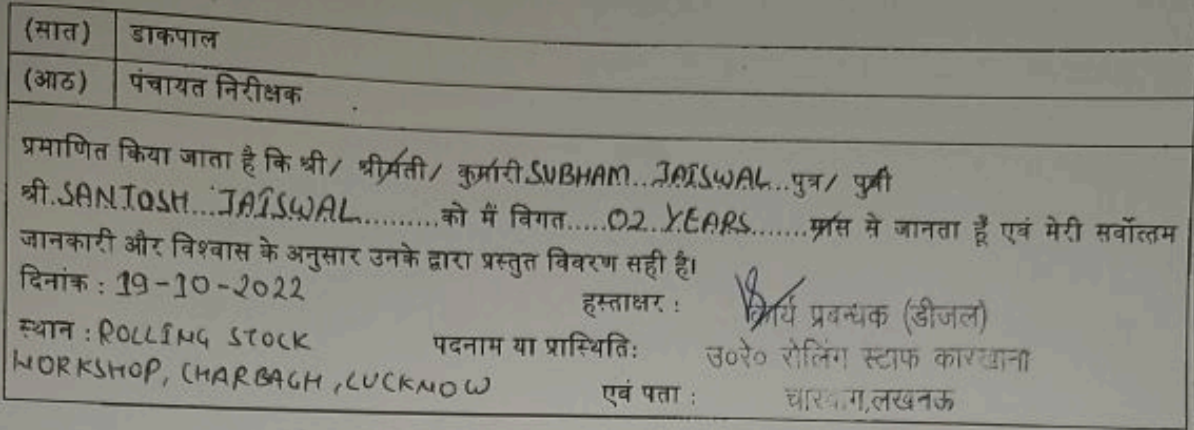 (सात) डाकपाल
(आठ) पंचायत निरीक्षक
प्रमाणित किया जाता है कि श्री/ श्रीमती/ कुमारी SUBHAM...JAISWAL...पुत्र/ पुत्री
श्री.SANTOSH...JAISWAL.........को मैं विगत.....02.YEARS.......मास से जानता हूँ एवं मेरी सर्वोत्तम
जानकारी और विश्वास के अनुसार उनके द्वारा प्रस्तुत विवरण सही है।
दिनांक : 19-10-2022
हस्ताक्षर : कार्य प्रबन्धक (डीजल)
स्थान : ROLLING STOCK
WORKSHOP, CHARBAGH, LUCKNOW
पदनाम या प्रास्थिति: उ०रे० रोलिंग स्टाफ कारखाना
एवं पता : चारबाग,लखनऊ